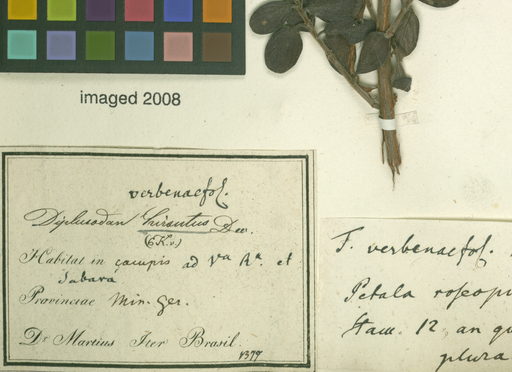 imaged 2008
verbenaefol.
Diplusodon hirsutus Dec.
Habitat in campis ad Va Ra. et
Sabara
Provinciae Min. Ger.
Dr Martius Iter Brasil.
1379
F. verbenaefol.
Petala roseopu
Stam. 12 an qu
plura